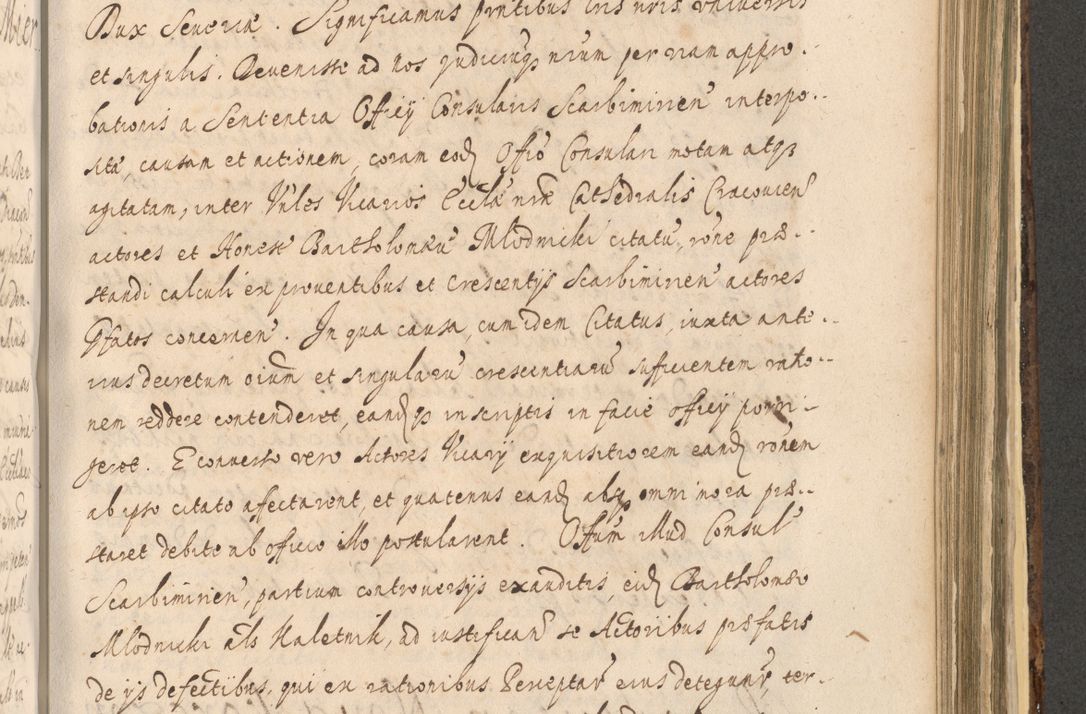 Dux Severiæ. Significamus pntibus lris nris universis
et singulis. Devenisse ad nos Judiciumq nrum per viam appro-
bationis a Sententia Officij Consularis Scarbimirien interpo-
sita, causam et actionem, coram eod Offio Consulari motam atq
agitatam, inter Vnles Vicarios Eccla nræ Cathedralis Cracovien
actores et Honest Bartholomeu Mlodnicki citatu, rone præ-
standi calculi ex proventibus et Crescentijs Scarbimirien actores
Pfatos concernen. In qua causa, cum idem Citatus, iuxta ante-
rius decretum oium et singularu crescentiaru sufficientem ratio-
nem reddere contenderet, eandq in scriptis in facie officij porri-
geret. E converso vero Actores Vicarij exquisitiorem eand ronem
ab ipso citato afectarent, et quatenus eand absq omni mora præ-
staret debite ab officio illo postularent. Offium illud Consul
Scarbimirien, partium controversijs exauditis, eid Bartholomeo
Mlodnicki als Kaletnik, ad iustifican se Actoribus præfatis
de ijs defectibus, qui ex rationibus Perceptar eius detegunr, ter-